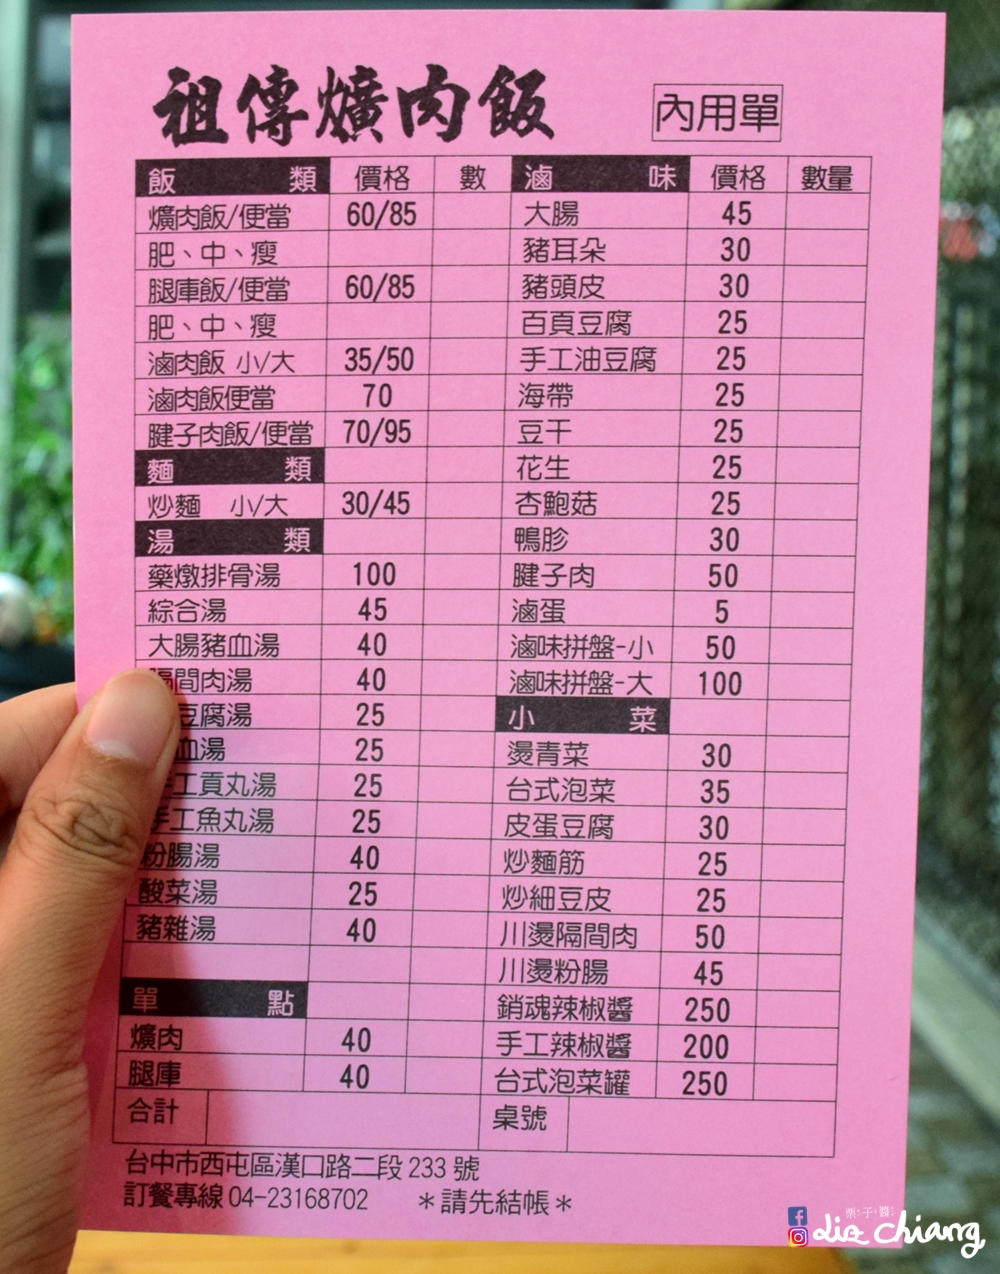 祖傳爌肉飯
內用單
飯類 價格 數
爌肉飯/便當 60/85
肥、中、瘦
腿庫飯/便當 60/85
肥、中、瘦
滷肉飯 小/大 35/50
滷肉飯便當 70
腱子肉飯/便當 70/95
麵類
炒麵 小/大 30/45
湯類
藥燉排骨湯 100
綜合湯 45
大腸豬血湯 40
隔間肉湯 40
豆腐湯 25
血湯 25
手工貢丸湯 25
手工魚丸湯 25
粉腸湯 40
酸菜湯 25
豬雜湯 40
單點
爌肉 40
腿庫 40
合計
滷味 價格 數量
大腸 45
豬耳朵 30
豬頭皮 30
百頁豆腐 25
手工油豆腐 25
海帶 25
豆干 25
花生 25
杏鮑菇 25
鴨胗 30
腱子肉 50
滷蛋 5
滷味拼盤-小 50
滷味拼盤-大 100
小菜
燙青菜 30
台式泡菜 35
皮蛋豆腐 30
炒麵筋 25
炒細豆皮 25
川燙隔間肉 50
川燙粉腸 45
銷魂辣椒醬 250
手工辣椒醬 200
台式泡菜罐 250
桌號
台中市西屯區漢口路二段 233 號
訂餐專線 04-23168702 *請先結帳*
栗子醬
Liz chiang